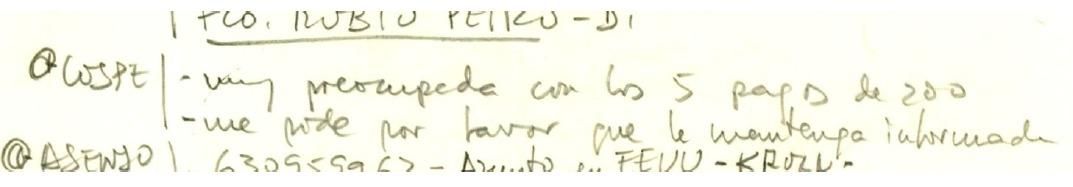 FCO. RUBIO PETRO - DI
@COSPE - muy preocupada con los 5 pagos de 200
- me pide por favor que le mantenga informada
@ASENJO 630959963 - Asunto en FEVU - KROLL -